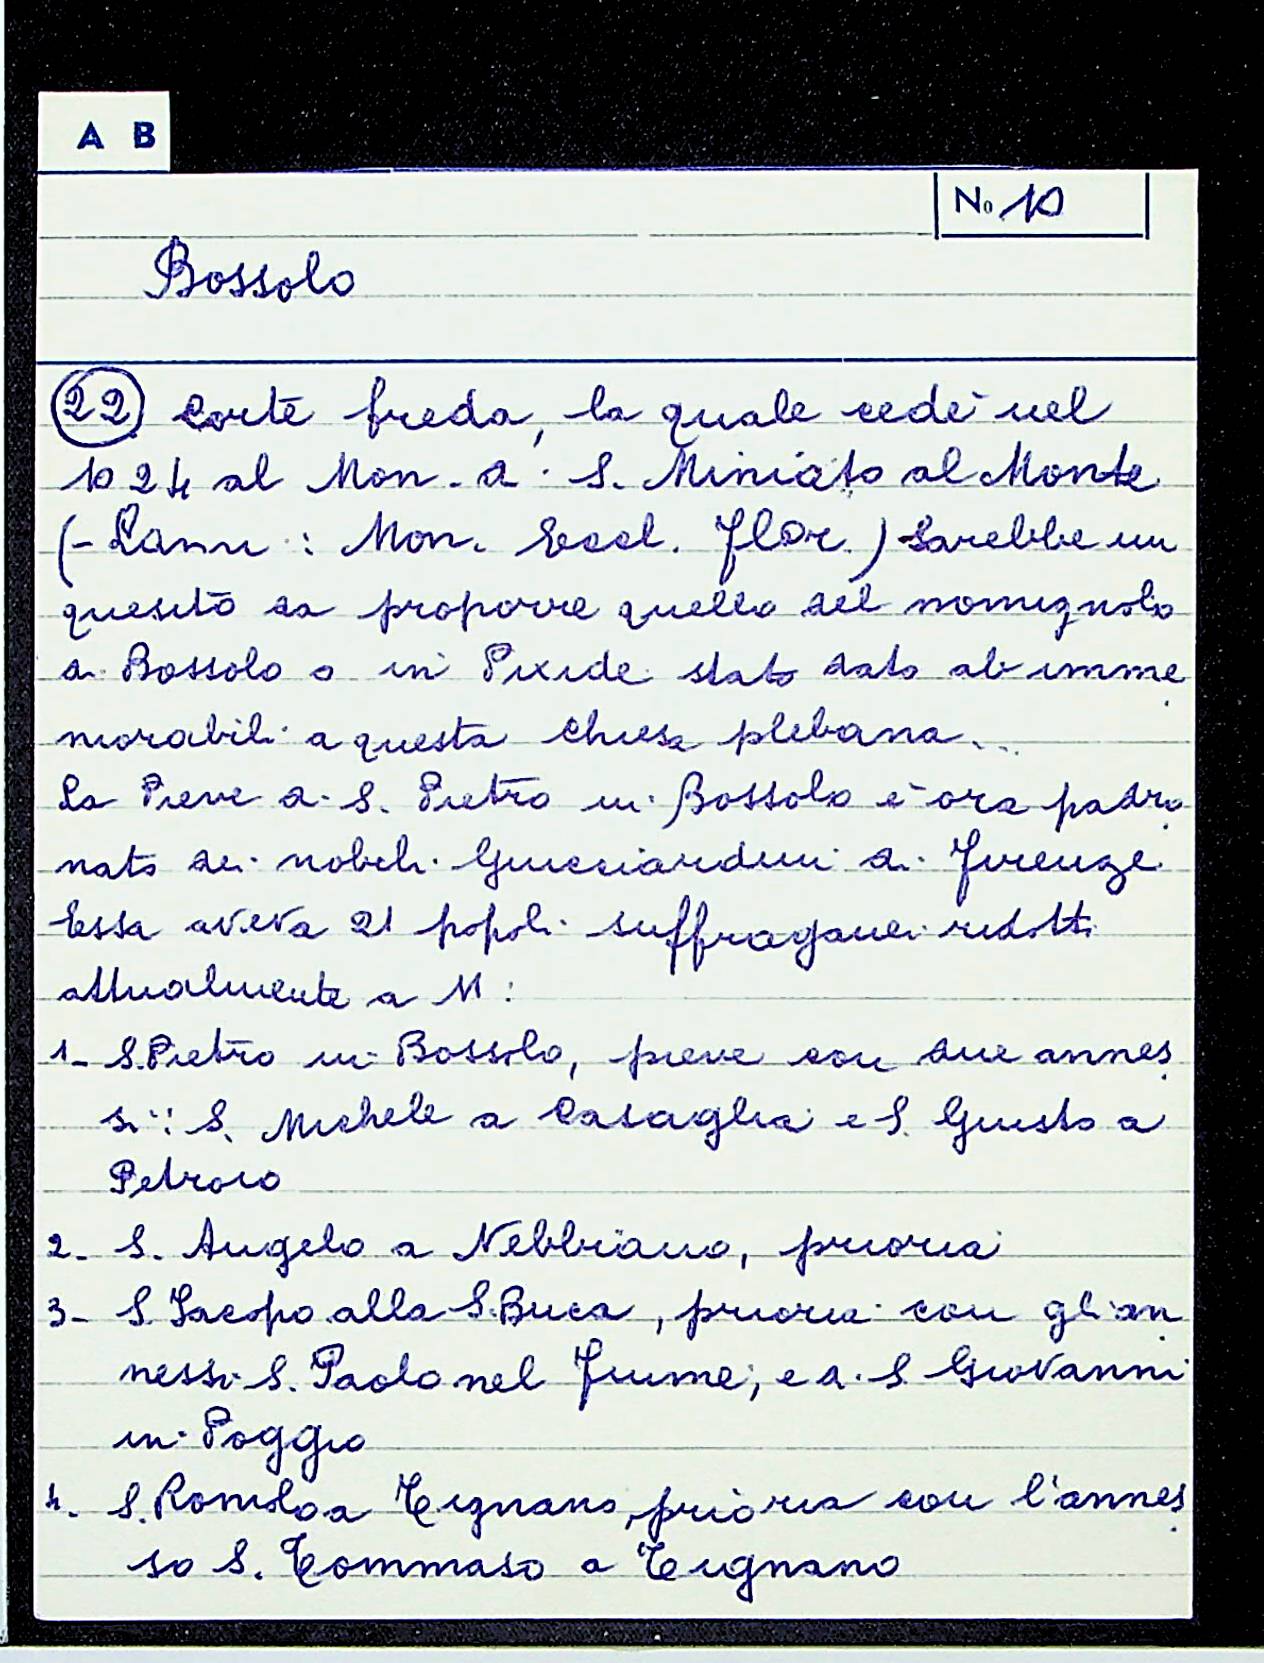 A B
No 10
Bossolo
22 Corte freda, la quale cedé nel
1024 al Mon. di S. Miniato al Monte
(- Lami: Mon. Eccl. Flor.) Sarebbe un
quesito da proporre quello del nomignolo
di Bossolo o in Pixide stato dato ab imme
morabili a questa chiesa plebana...
La Pieve di S. Pietro in Bossolo è ora padro
nato dei nobili Guicciardini di Firenze
Essa aveva 21 popoli suffraganei ridotti
attualmente a 11:
1- S. Pietro in Bossolo, pieve con due annes
si: S. Michele a Casaglia e S. Giusto a
Petroio
2- S. Angelo a Nebbiano, prioria
3- S. Jacopo alla S. Buca, prioria con gli an
nessi S. Paolo nel Fiume, e di S. Giovanni
in Poggio
4. S. Romolo a Tignano, prioria con l'annes
so S. Tommaso a Tignano